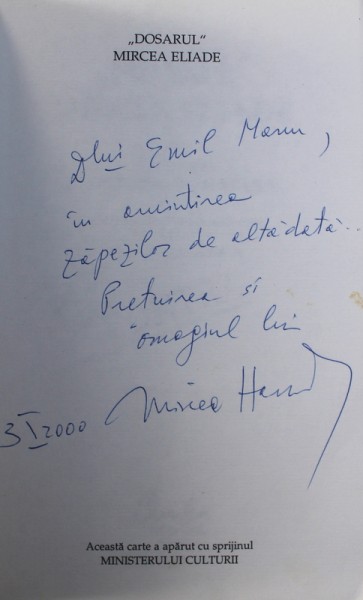 „DOSARUL“
MIRCEA ELIADE
Dlui Emil Manu,
în amintirea
zăpezilor de altădată..
Prețuirea și
omagiul lui
Mircea Handoca
3 I 2000
Această carte a apărut cu sprijinul
MINISTERULUI CULTURII